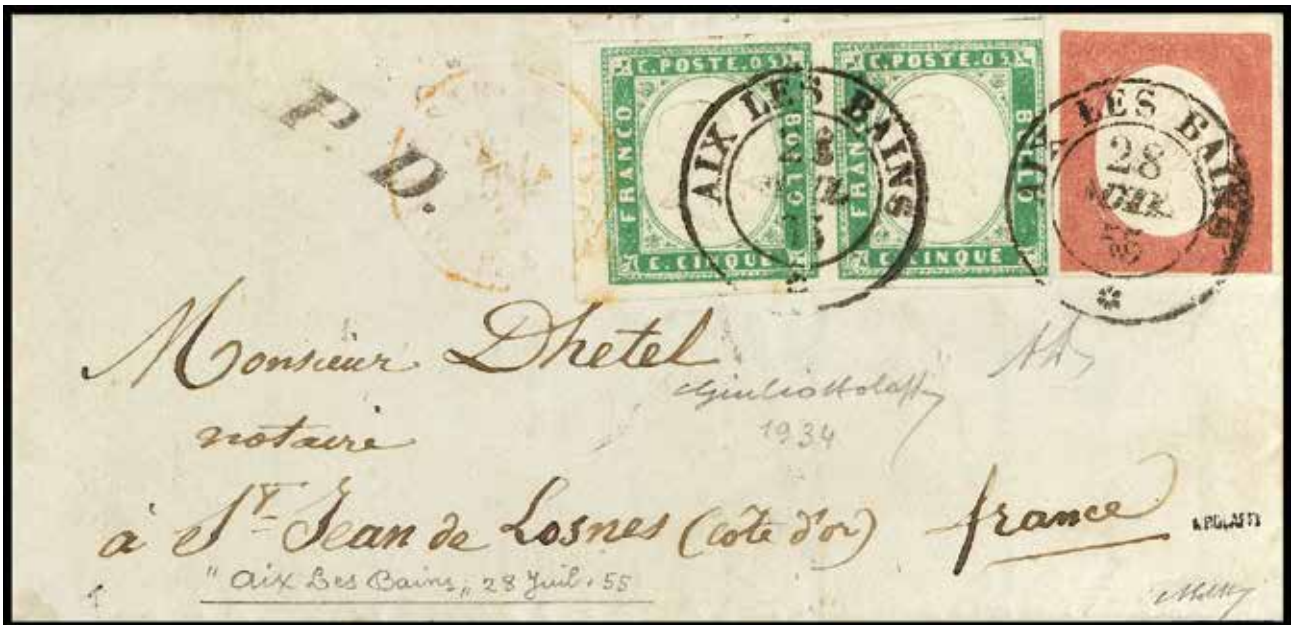 P. D.
C. POSTE. 05
FRANCO
BOLLO
C. CINQUE
C. POSTE. 05
FRANCO
BOLLO
C. CINQUE
AIX LES BAINS
AIX LES BAINS
28
55
Monsieur Dhetel
notaire
1934
à St Jean de Losnes (côte d'or) france
"Aix Les Bains" 28 Juil. 55